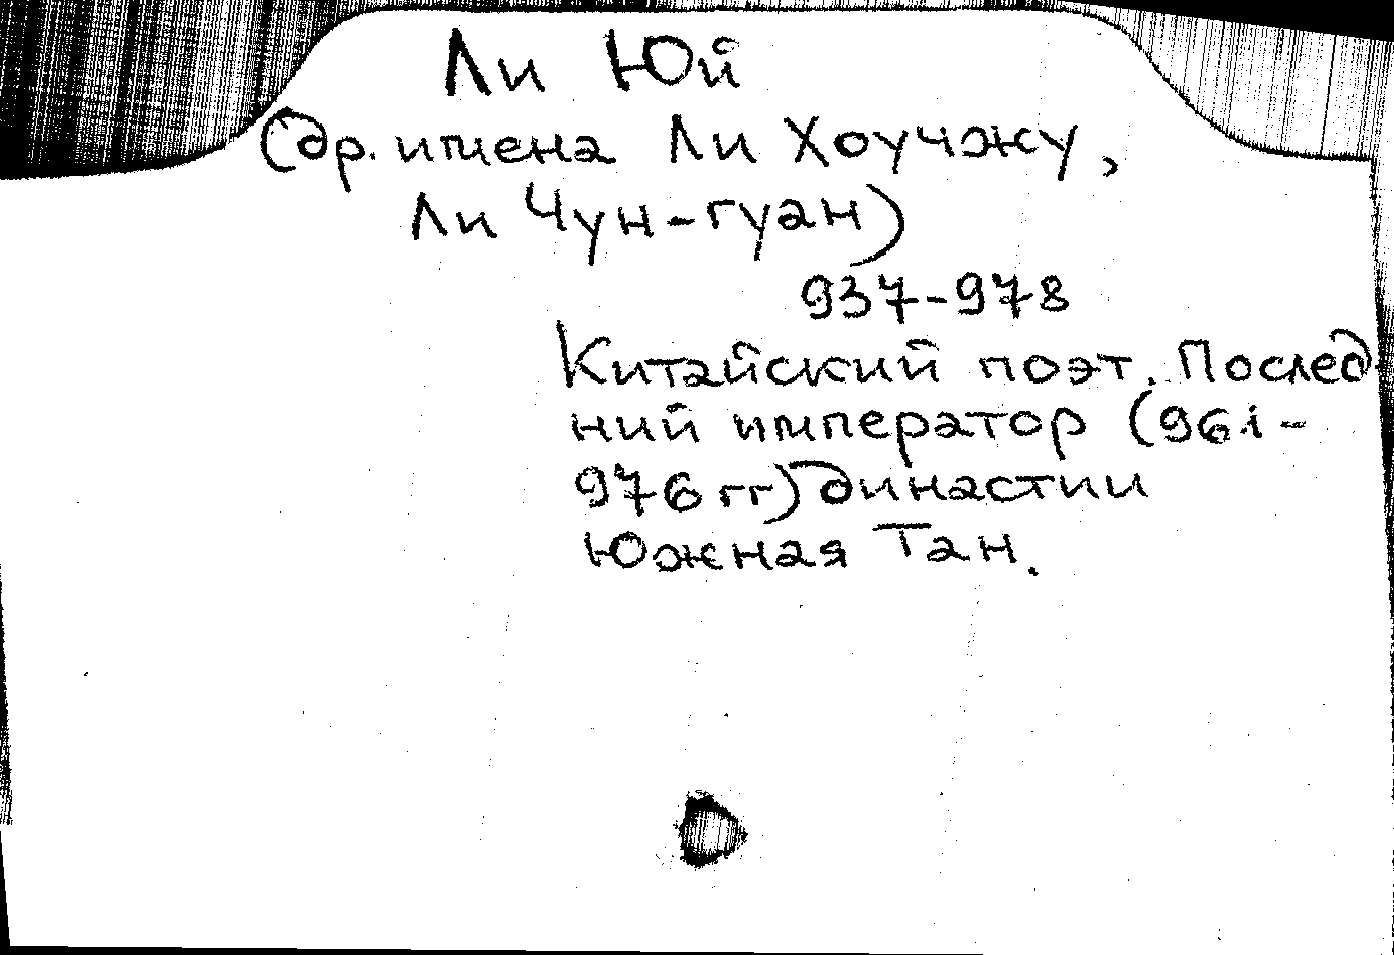 Ли Юй
(др. имена Ли Хоучжу,
Ли Чун-гуан)
937-978
Китайский поэт. Послед
ний император (961-
976 гг) династии
Южная Тан.